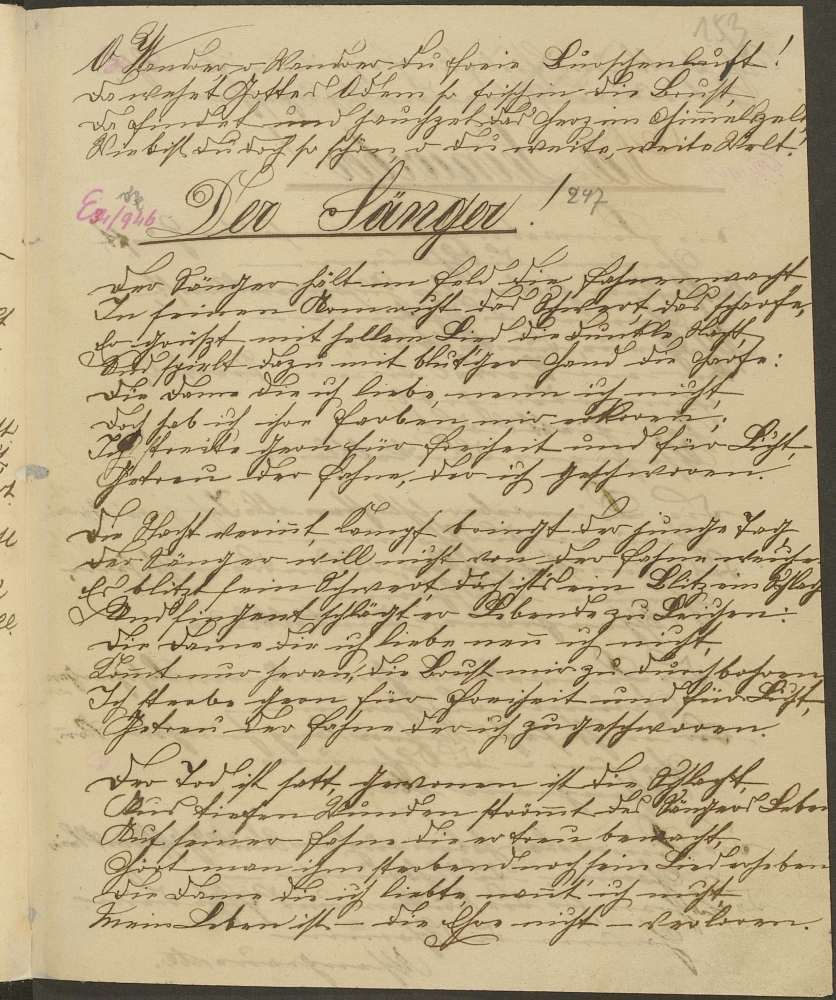 153
O Wandern o Wandern du freie Burschenlust!
da weht Gottes Odem so frisch in die Brust,
da findet und jauchzet das Herz im Himmelszelt
Wie bist du doch so schön o du weite, weite Welt!
E 34/946
Der Sänger! 247
Der Sänger hält im Feld die Fahnenwacht
In seinem Arm ruht das Schwert, das scharfe,
Er grüßt mit hellem Lied die dunkle Nacht,
Und spielt dazu mit blut'ger Hand die Harfe:
Die Dame die ich liebe, nenn ich nicht,
Doch hab ich ihre Farben mir erkoren,
Ich streite gern für Freiheit und für Licht,
Getreu der Fahne, der ich geschworen.
Die Nacht verrinnt, Kampf bringt der junge Tag,
Der Sänger will nicht von der Fahne weichen
Es blitzt sein Schwert, doch ist's ein Blitz im Schlag
Und singend schlägt er Lebende zu Leichen:
Die Dame die ich liebe nenn ich nicht,
Komt nur heran, die Brust mir zu durchbohren
Ich sterbe gern für Freiheit und für Licht,
Getreu der Fahne der ich zugeschworen.
Der Tod ist satt, gewonnen ist die Schlacht,
Aus tiefen Wunden strömt des Sängers Leben
Auf seiner Fahne die er treu bewacht,
Hört man ihn sterbend noch sein Lied erheben
Die Dame die ich liebte, nannt ich nicht
Mein Leben ist – die Ehre nicht – verloren.